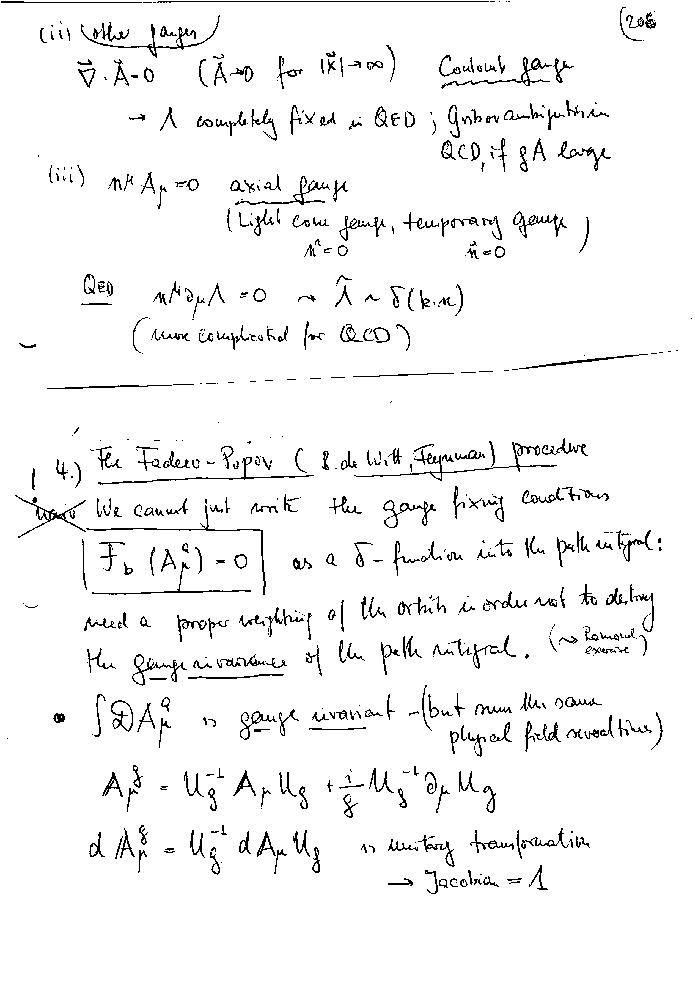 (206
(ii) other gauges
∇⃗·A⃗=0 (A⃗→0 for |x⃗|→∞) Coulomb gauge
→ Λ completely fixed in QED ; Gribov ambiguities in
QCD, if gA large
(iii) n^μ A_μ = 0 axial gauge
(Light cone gauge, temporary gauge)
n²=0 n⃗=0
QED n^μ ∂_μ Λ = 0 ~> Λ̃ ~ δ(k·n)
(more complicated for QCD)
4.) The Fadeev-Popov (B. de Witt, Feynman) procedure
We cannot just write the gauge fixing conditions
F_b (A_μ^a) = 0 as a δ-function into the path integral:
need a proper weighting of the orbits in order not to destroy
the gauge invariance of the path integral. (~> Ramond exercise)
• ∫DA_μ^a is gauge invariant – (but sum the same
physical field several times)
A_μ^g = U_g^{-1} A_μ U_g + i/g U_g^{-1} ∂_μ U_g
dA_μ^g = U_g^{-1} dA_μ U_g is unitary transformation
→ Jacobian = 1